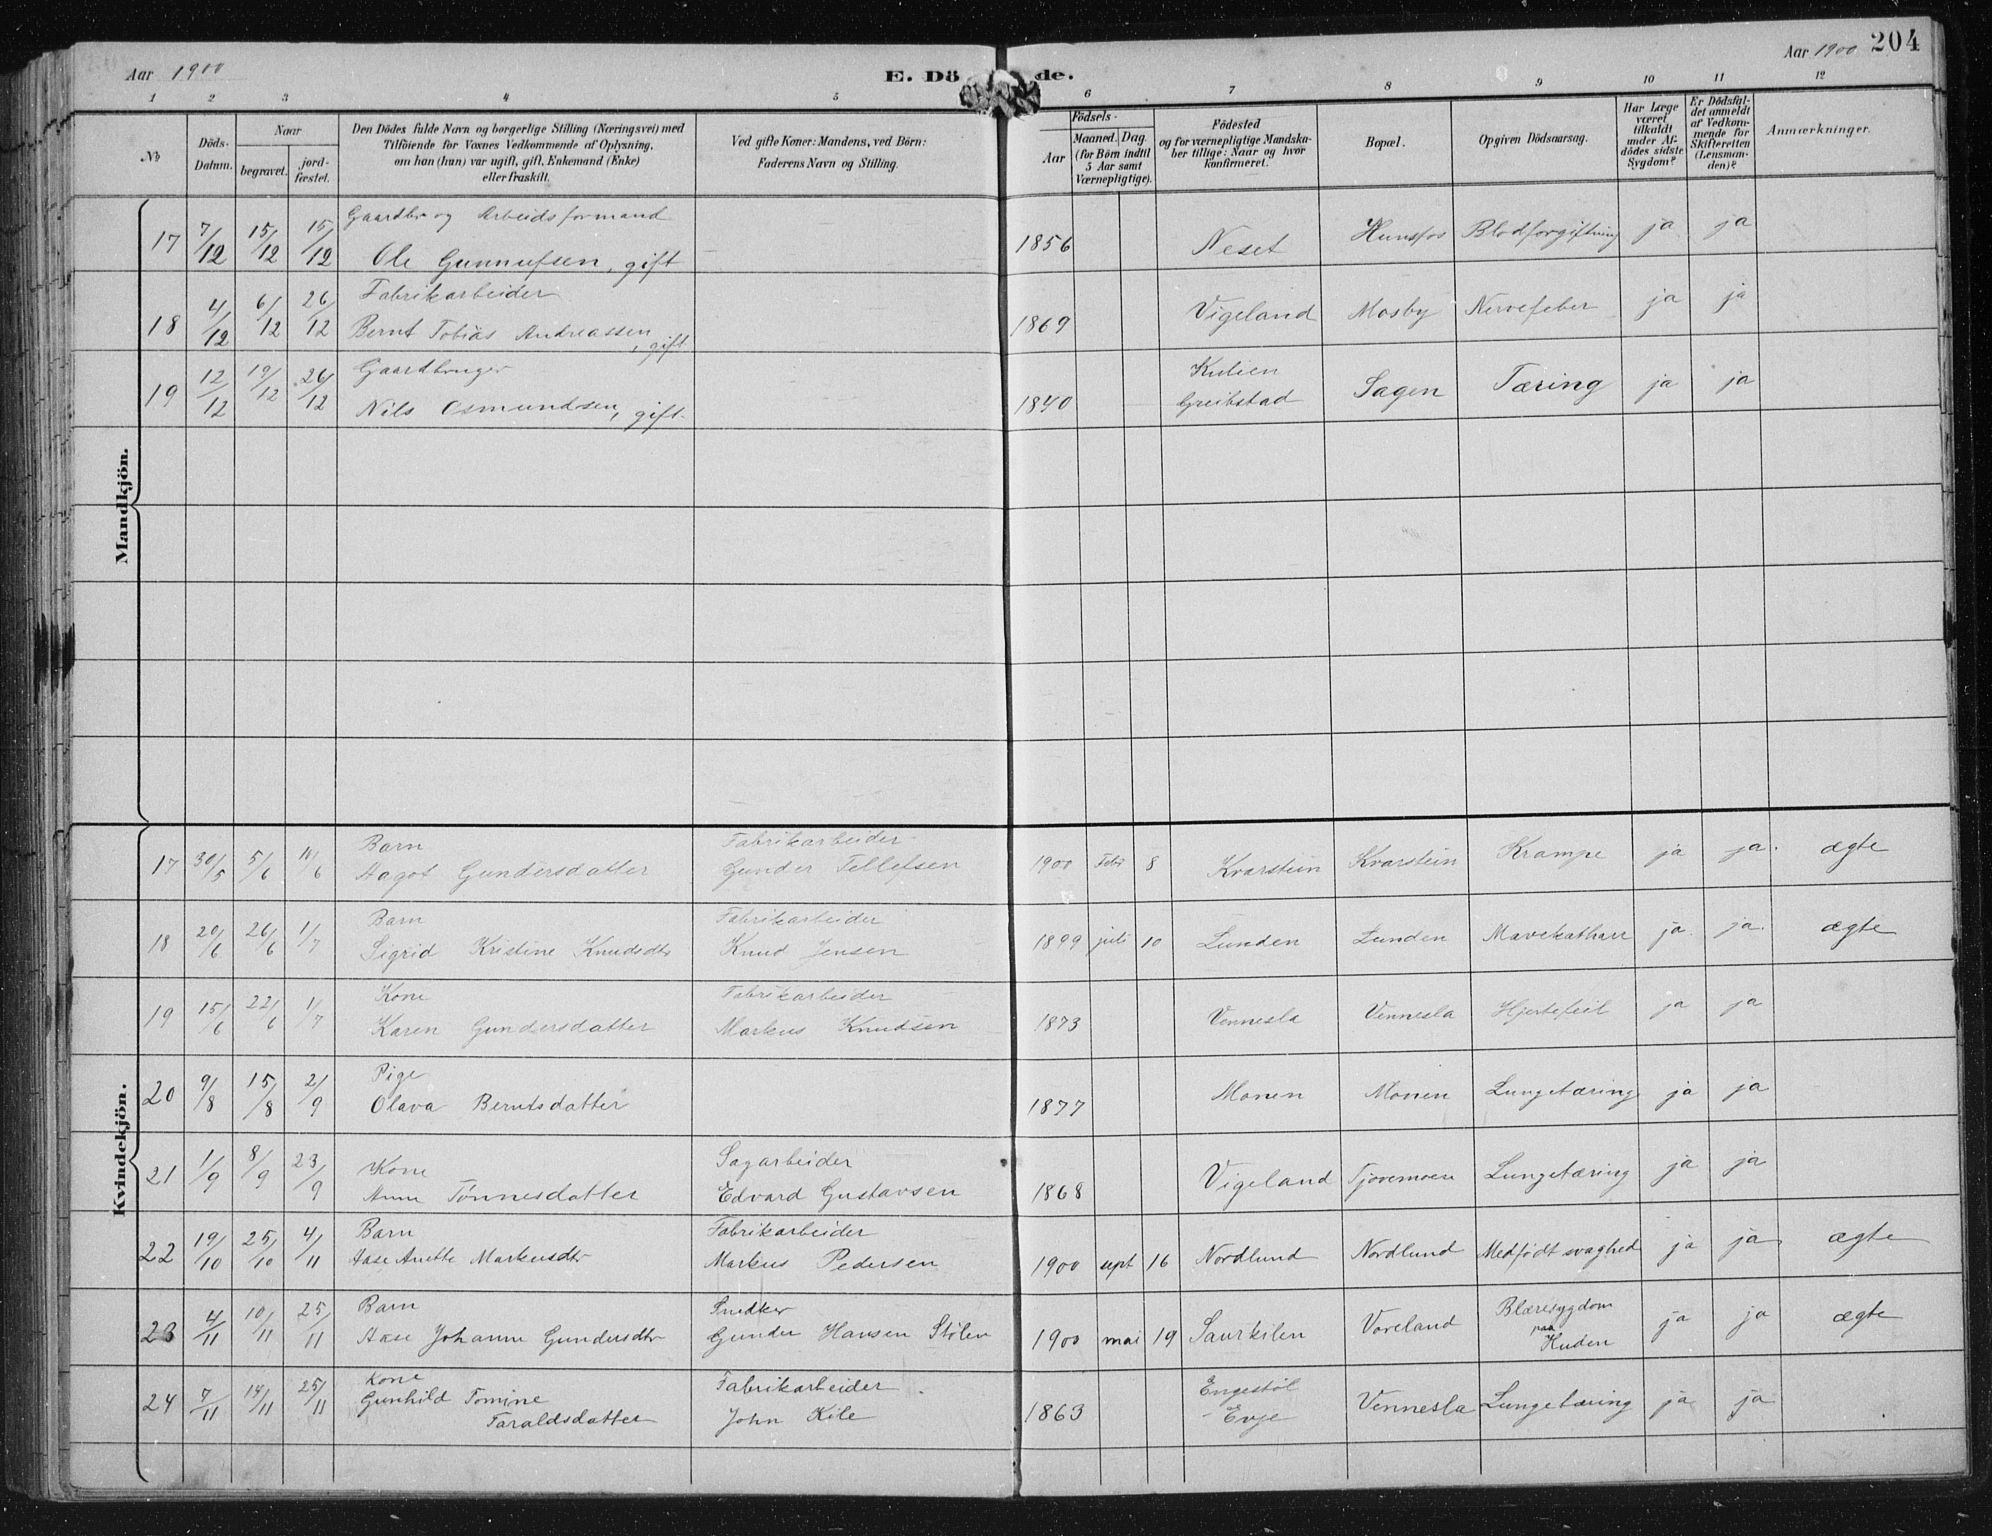 Aar 1900
E. Dö de.
Aar 1900 204
1 2 3 4 5 6 7 8 9 10 11 12
No
Döds-
Datum.
Naar
begravet.
jord-
fæstet.
Den Dödes fulde Navn og borgerlige Stilling (Næringsvei) med
Tilföiende for Voxnes Vedkommende af Oplysning,
om han (hun) var ugift, gift, Enkemand (Enke)
eller fraskilt.
Ved gifte Koner: Mandens, ved Börn:
Faderens Navn og Stilling.
Födsels-
Aar
Maaned. Dag.
(for Börn indtil
5 Aar samt
Værnepligtige).
Födested
og for værnepligtige Mandska-
ber tillige: Naar og hvor
konfirmeret.
Bopæl.
Opgiven Dödsaarsag.
Har Læge
været
tilkaldt
under Af-
dödes sidste
Sygdom?
Er Dödsfal-
det anmeldt
af Vedkom-
mende for
Skifteretten
(Lensman-
den)?
Anmærkninger.
Mandkjön.
17 7/12 15/12 15/12 Gaardbr og Arbeidsformand
Ole Gunnufsen, gift 1856 Neset Hunsfos Blodforgiftning ja ja
18 4/12 6/12 26/12 Fabrikarbeider
Bernt Tobias Andreassen, gift 1869 Vigeland Mosby Nervefeber ja ja
19 12/12 19/12 26/12 Gaardbruger
Nils Osmundsen, gift 1840 Kulien
Greibstad Sagen Tæring ja ja
Kvindekjön.
17 30/5 5/6 /6 Barn Fabrikarbeider
Aagot Gundersdatter Gunder Tellefsen 1900 Febr 8 Kvarstein Kvarstein Krampe ja ja. ægte
18 20/6 26/6 1/7 Barn Fabrikarbeider
Sigrid Kristine Knudsdtr Knud Jensen 1899 juli 10 Lunden Lunden Mavekatharr ja ja. ægte
19 15/6 22/6 1/7 Kone Fabrikarbeider
Karen Gundersdatter Markus Knudsen 1873 Vennesla Vennesla Hjertefeil ja ja
20 9/8 15/8 2/9 Pige
Olava Berntsdatter 1877 Monen Monen Lungetæring ja ja
21 1/9 8/9 23/9 Kone Sagarbeider
Anne Tönnesdatter Edvard Gustavsen 1868 Vigeland Tjovemoen Lungetæring ja ja
22 19/10 25/10 4/11 Barn Fabrikarbeider
Aase Anette Markusdtr Markus Pedersen 1900 sept 16 Nordlund Nordlund Medfödt svaghed ja ja ægte
23 4/11 10/11 25/11 Barn Snedker
Aase Johanne Gundersdtr Gunder Hansen Stölen 1900 mai 19 Saurkilen Voreland Blæresygdom
paa
Huden ja ja ægte
24 7/11 14/11 25/11 Kone Fabrikarbeider
Gunhild Tomine
Taraldsdatter John Kile 1863 Engestöl
- Evje Vennesla Lungetæring ja ja